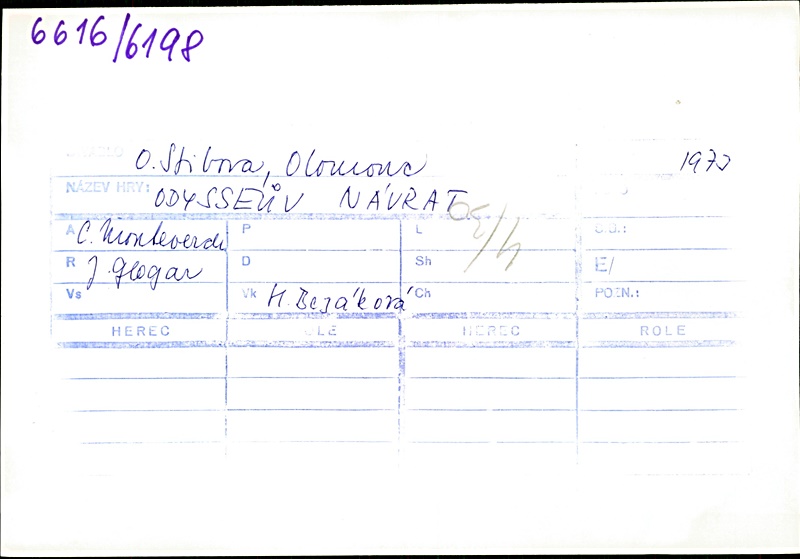 6616/6198
O. Stibora, Olomouc
NÁZEV HRY: ODYSSEŮV NÁVRAT
A C. Monteverdi P L
R J. Glogar D Sh E/
Vs Vk H. Bezáková Ch POZN.:
HEREC ROLE HEREC ROLE